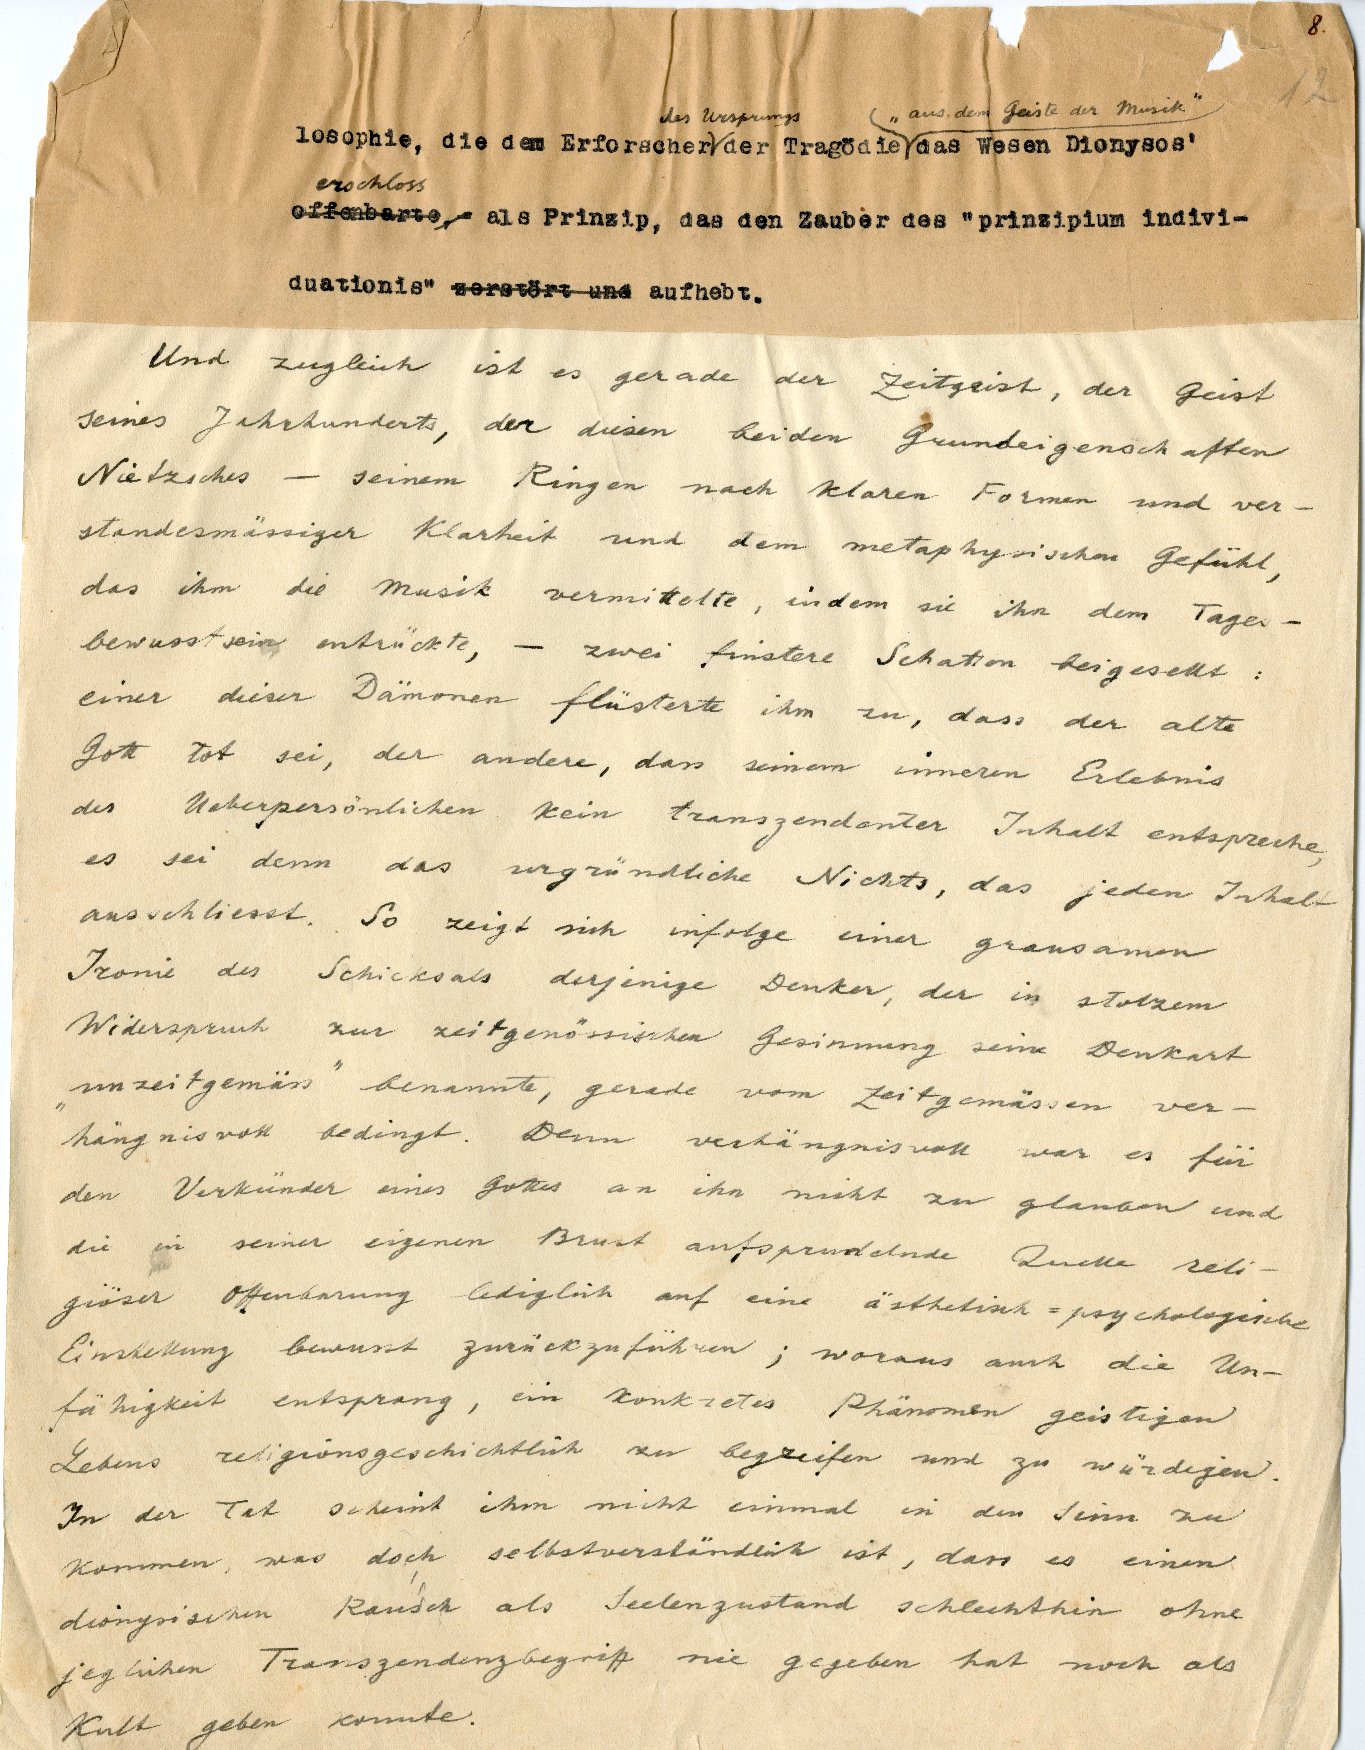 8.
12
des Ursprungs („aus dem Geiste der Musik"
losophie, die dem Erforscher der Tragödie das Wesen Dionysos'
erschloss
offenbarte, - als Prinzip, das den Zauber des "prinzipium indivi-
duationis" zerstört und aufhebt.
Und zugleich ist es gerade der Zeitgeist, der Geist
seines Jahrhunderts, der diesen beiden Grundeigenschaften
Nietzsches — seinem Ringen nach klaren Formen und ver-
standesmässiger Klarheit und dem metaphysischen Gefühl,
das ihm die Musik vermittelte, indem sie ihn dem Tages-
bewusstsein entrückte, — zwei finstere Schatten beigesellt:
einer dieser Dämonen flüsterte ihm zu, dass der alte
Gott tot sei, der andere, dass seinem inneren Erlebnis
des Ueberpersönlichen kein transzendenter Inhalt entspreche,
es sei denn das urgründliche Nichts, das jeden Inhalt
ausschliesst. So zeigt sich infolge einer grausamen
Ironie des Schicksals derjenige Denker, der in stolzem
Widerspruch zur zeitgenössischen Gesinnung seine Denkart
„unzeitgemäss" benannte, gerade vom Zeitgemässen ver-
hängnisvoll bedingt. Denn verhängnisvoll war es für
den Verkünder eines Gottes an ihn nicht zu glauben und
die in seiner eigenen Brust aufsprudelnde Quelle reli-
giöser Offenbarung lediglich auf eine ästhetisch=psychologische
Einstellung bewusst zurückzuführen; woraus auch die Un-
fähigkeit entsprang, ein konkretes Phänomen geistigen
Lebens religionsgeschichtlich zu begreifen und zu würdigen.
In der Tat scheint ihm nicht einmal in den Sinn zu
kommen, was doch selbstverständlich ist, dass es einen
dionysischen Rausch als Seelenzustand schlechthin ohne
jeglichen Transzendenzbegriff nie gegeben hat noch als
Kult geben konnte.